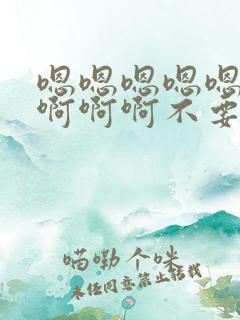 嗯嗯嗯嗯嗯
啊啊啊不要
喵嘞个咪
未经同意禁止转载